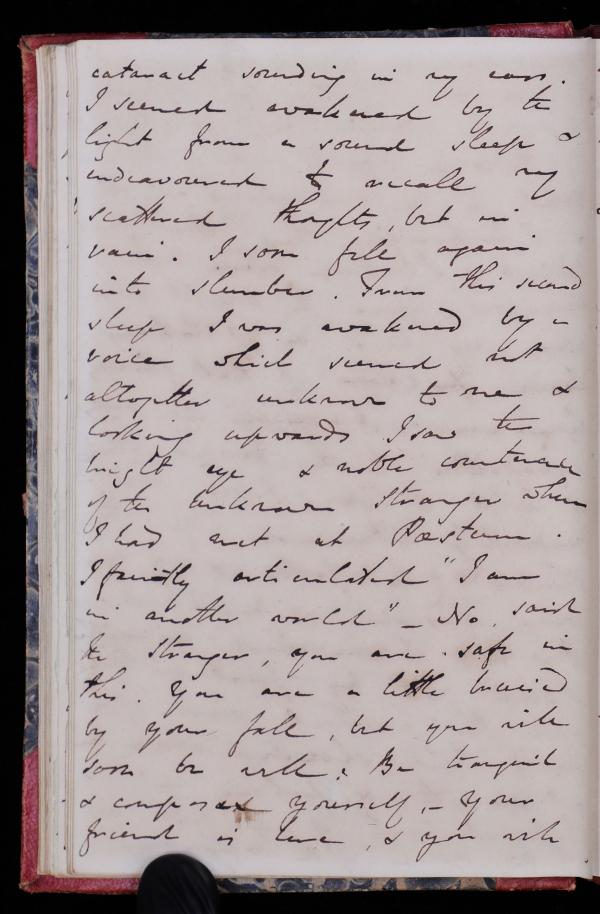 cataract sounding in my ears.
I seemed awakened by the
light from a sound sleep &
endeavoured to recall my
scattered thoughts, but in
vain. I soon fell again
into slumber. From this second
sleep I was awakened by a
voice which seemed not
altogether unknown to me &
looking upwards I saw the
bright eye & noble countenance
of the unknown stranger whom
I had met at Pæstum.
I faintly articulated "I am
in another world" – No, said
the stranger, you are safe in
this. You are a little bruised
by your fall, but you will
soon be well; Be tranquil
& compose yourself, – Your
friend is here, & you will